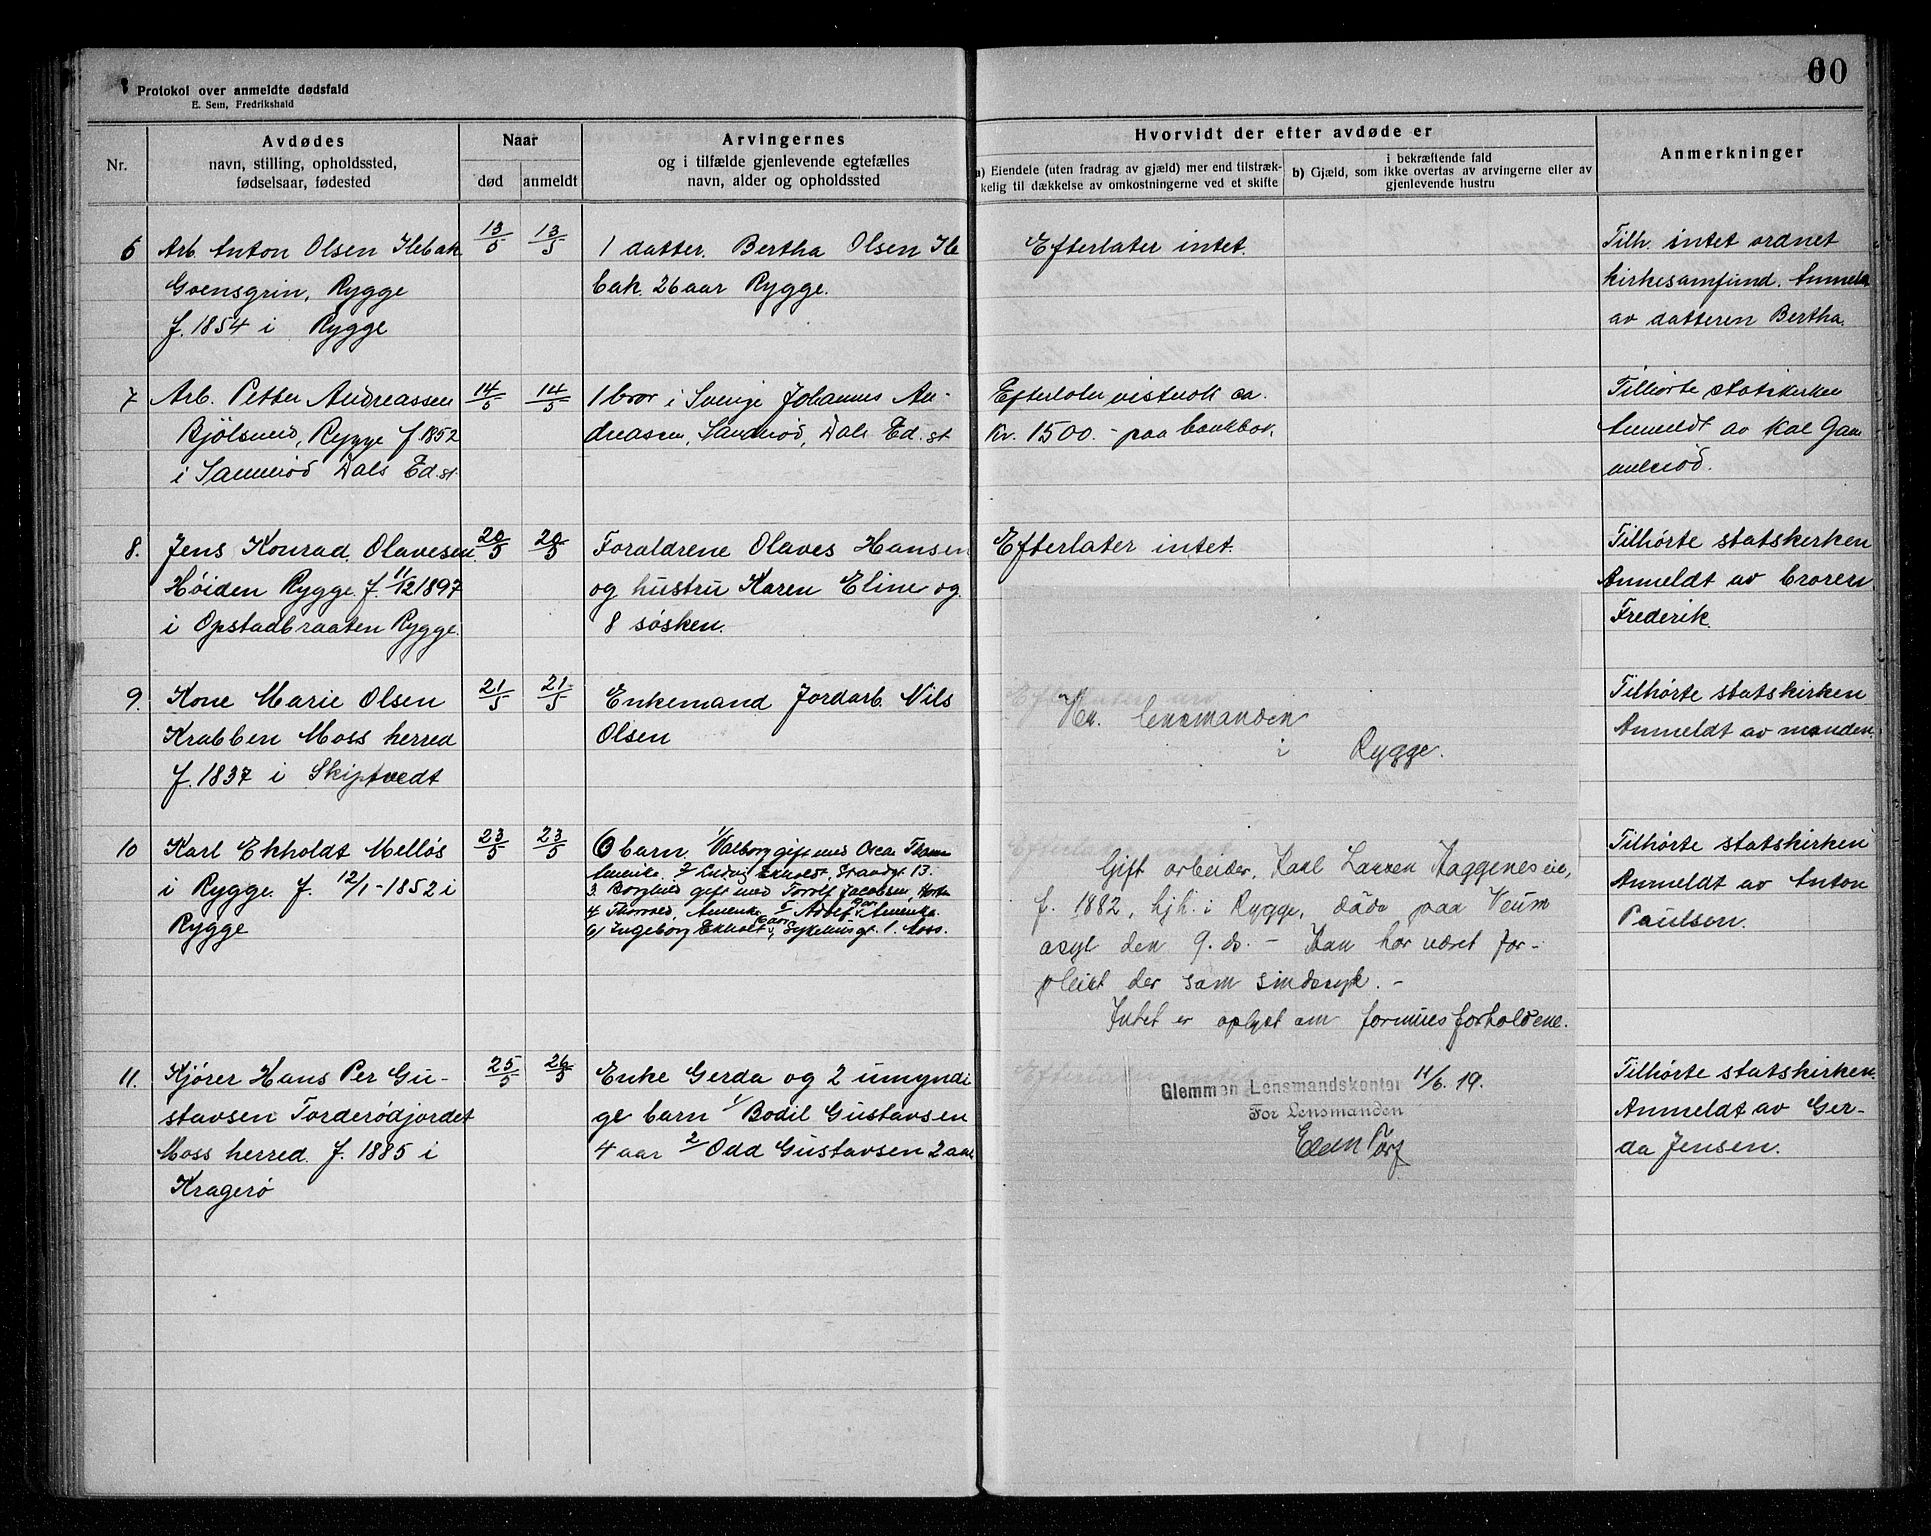 Protokol over anmeldte dødsfald
E. Sem, Fredrikshald
60
Nr.
Avdødes
navn, stilling, opholdssted,
fødselsaar, fødested
Naar
død
anmeldt
Arvingernes
og i tilfælde gjenlevende egtefælles
navn, alder og opholdssted
Hvorvidt der efter avdøde er
a) Eiendele (uten fradrag av gjæld) mer end tilstræk-
kelig til dækkelse av omkostningerne ved et skifte
i bekræftende fald
b) Gjæld, som ikke overtas av arvingerne eller av
gjenlevende hustru
Anmerkninger
6 Arb. Anton Olsen Ilebak
Goensgrin, Rygge
f. 1854 i Rygge
13/5
13/5
1 datter. Bertha Olsen Ile
bak. 26 aar Rygge.
Efterlater intet.
Tilh. intet ordnet
kirkesamfund. Anmeldt
av datteren Bertha.
7 Arb. Petter Andreassen
Rygge f. 1852
i Dals Ed. st
14/5
14/5
1 bror i Sverige Johannes An-
dreasen, Dals Ed. st
Efterlater vistnok ca.
Kr. 1500.- paa bankbok.
Tilhørte statskirken
Anmeldt av
8. Jens Konrad Olavesen
Høiden Rygge. f. 11/12 1897
i Opstadbraaten Rygge.
20/5
20/5
Foraldrene Olaves Hansen
og hustru Karen Eline og
8 søsken.
Efterlater intet.
Tilhørte statskirken
Anmeldt av broren
Frederik.
9. Kone Marie Olsen
Krabben Moss herred
f. 1837 i Skiptvedt
21/5
21/5
Enkemand Jordarb. Nils
Olsen
Tilhørte statskirken
Anmeldt av manden.
10 Karl Ekholdt Melløs
i Rygge. f. 12/1-1852 i
Rygge
23/5
23/5
6 barn. 1/ Valborg gift med
Amerika. 2/ Ludvig Ekholdt, Strandgt. 13.
3. Borghild gift med Torolf Jacobsen,
4 Thorvald, Amerika 5 Adolf Amerika.
6/ Ingeborg Ekholt Sykehusgt. 1. Moss.
Tilhørte statskirken
Anmeldt av Anton
Paulsen.
11. Kjører Hans Per Gu-
stavsen Torderødjordet
Moss herred. f. 1885 i
Kragerø
25/5
26/5
Enke Gerda og 2 umyndi
ge barn 1/ Bodil Gustavsen
4 aar 2/ Odd Gustavsen 2 aar
Tilhørte statskirken.
Anmeldt av Ger-
da Jensen.
Hr. lensmanden
i Rygge.
Gift arbeider, Karl Larsen Haggenes eie,
f. 1882, hjh. i Rygge, døde paa Veum
asyl den 9. ds. - Han har været for-
pleiet der som sindssyk. -
Intet er oplyst om formuesforholdene.
Glemmen Lensmandskontor 11/6. 19.
For Lensmanden